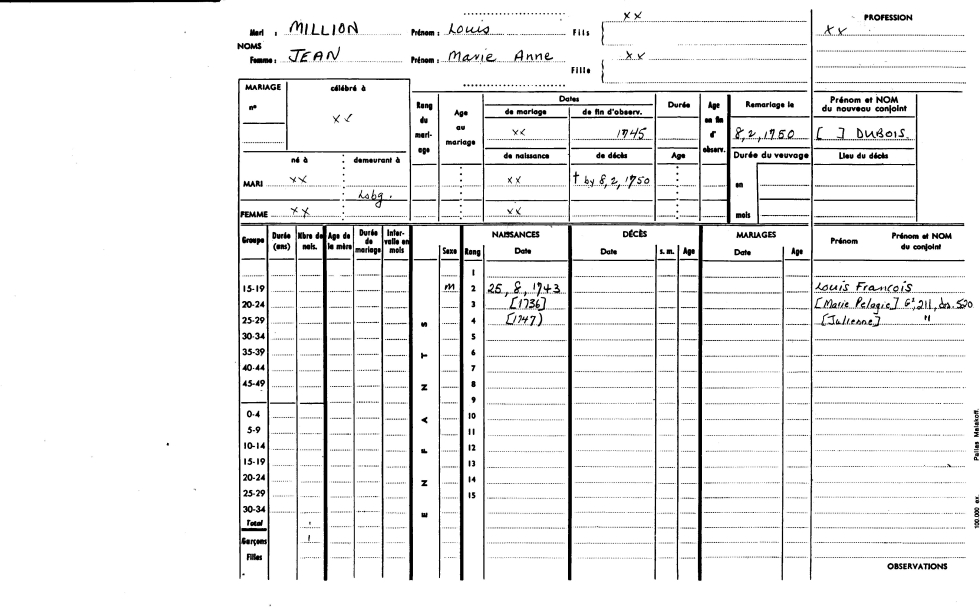 Mari : MILLION Prénom : Louis Fils xx PROFESSION
xx
NOMS
Femme : JEAN Prénom : Marie Anne Fille xx
MARIAGE célébré à
n° xx
Rang du mari-age
Age au mariage
Dates
de mariage de fin d'observ.
xx 1745
Durée
Age en fin d' observ.
Remariage le
8,2,1750
Prénom et NOM du nouveau conjoint
[ ] DUBOIS.
né à demeurant à
de naissance de décès Age
Durée du veuvage
Lieu du décès
MARI xx
xx † by 8,2,1750
en
Lsbg.
FEMME xx
xx
mois
Groupe Durée (ans) Nbre de nais. Age de la mère Durée de mariage Inter-valle en mois
ENFANTS
Sexe Rang
NAISSANCES Date
DÉCÈS Date s. m. Age
MARIAGES Date Age
Prénom Prénom et NOM du conjoint
1
15-19 m 2 25, 8, 1743 Louis Francois
20-24 3 [1736] [Marie Pelagie] G²,211, dn.520
25-29 4 [1747) [Julienne] "
30-34 5
35-39 6
40-44 7
45-49 8
9
0-4 10
5-9 11
10-14 12
15-19 13
20-24 14
25-29 15
30-34
Total 1
Garçons 1
Filles
OBSERVATIONS
100.000 ex. Pallas Malakoff.